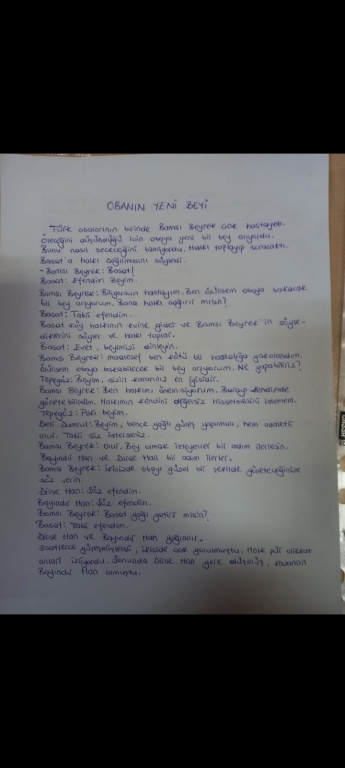 OBANIN YENİ BEYİ
Türk obalarının birinde Bamsı Beyrek çok hastaydı.
Öleceğini düşündüğü için obaya yeni bir bey arıyordu.
Bunu nasıl seçeceğini bilmiyordu. Halkı toplayıp soracaktı.
Basat'a halkı çağırmasını söyledi.
- Bamsı Beyrek: Basat!
Basat: Efendim Beyim.
Bamsı Beyrek: Biliyorsun hastayım. Ben ölürsem obaya bakacak
bir bey arıyorum. Bana halkı çağırır mısın?
Basat: Tabi efendim.
Basat köy halkının evine gider ve Bamsı Beyrek'in söyle-
diklerini söyler ve halkı toplar.
Basat: Evet, beyimizi dinleyin.
Bamsı Beyrek: Maalesef ben kötü bir hastalığa yakalandım.
Ölürsem obaya bakabilecek bir bey arıyorum. Ne yapabiliriz?
Tepegöz: Beyim, sizin kararınız en iyisidir.
Bamsı Beyrek: Ben halkımı önemsiyorum. Burayı kendimde
yönetebilirdim. Halkımın kendini değersiz hissetmesini istemem.
Tepegöz: Peki beyim.
Deli Dumrul: Beyim, bence yağlı güreş yapmalı, hem adaletli
olur. Tabii siz isterseniz.
Bamsı Beyrek: Olur. Bey olmak isteyenler bir adım ilerlesin.
Bayındır Han ve Dirse Han bir adım ilerler.
Bamsı Beyrek: İkinizde obayı güzel bir şekilde yöneteceğinize
söz verin.
Dirse Han: Söz efendim.
Bayındır Han: Söz efendim.
Bamsı Beyrek: Basat yağı getirir misin?
Basat: Tabi efendim.
Dirse Han ve Bayındır Han yağlanır.
Saatlerce güreşmişlerdi, ikiside çok yorulmuştu. Halk pür dikkat
onları izliyordu. Sonunda Dirse Han yere düşmüş, kazanan
Bayındır Han olmuştu.